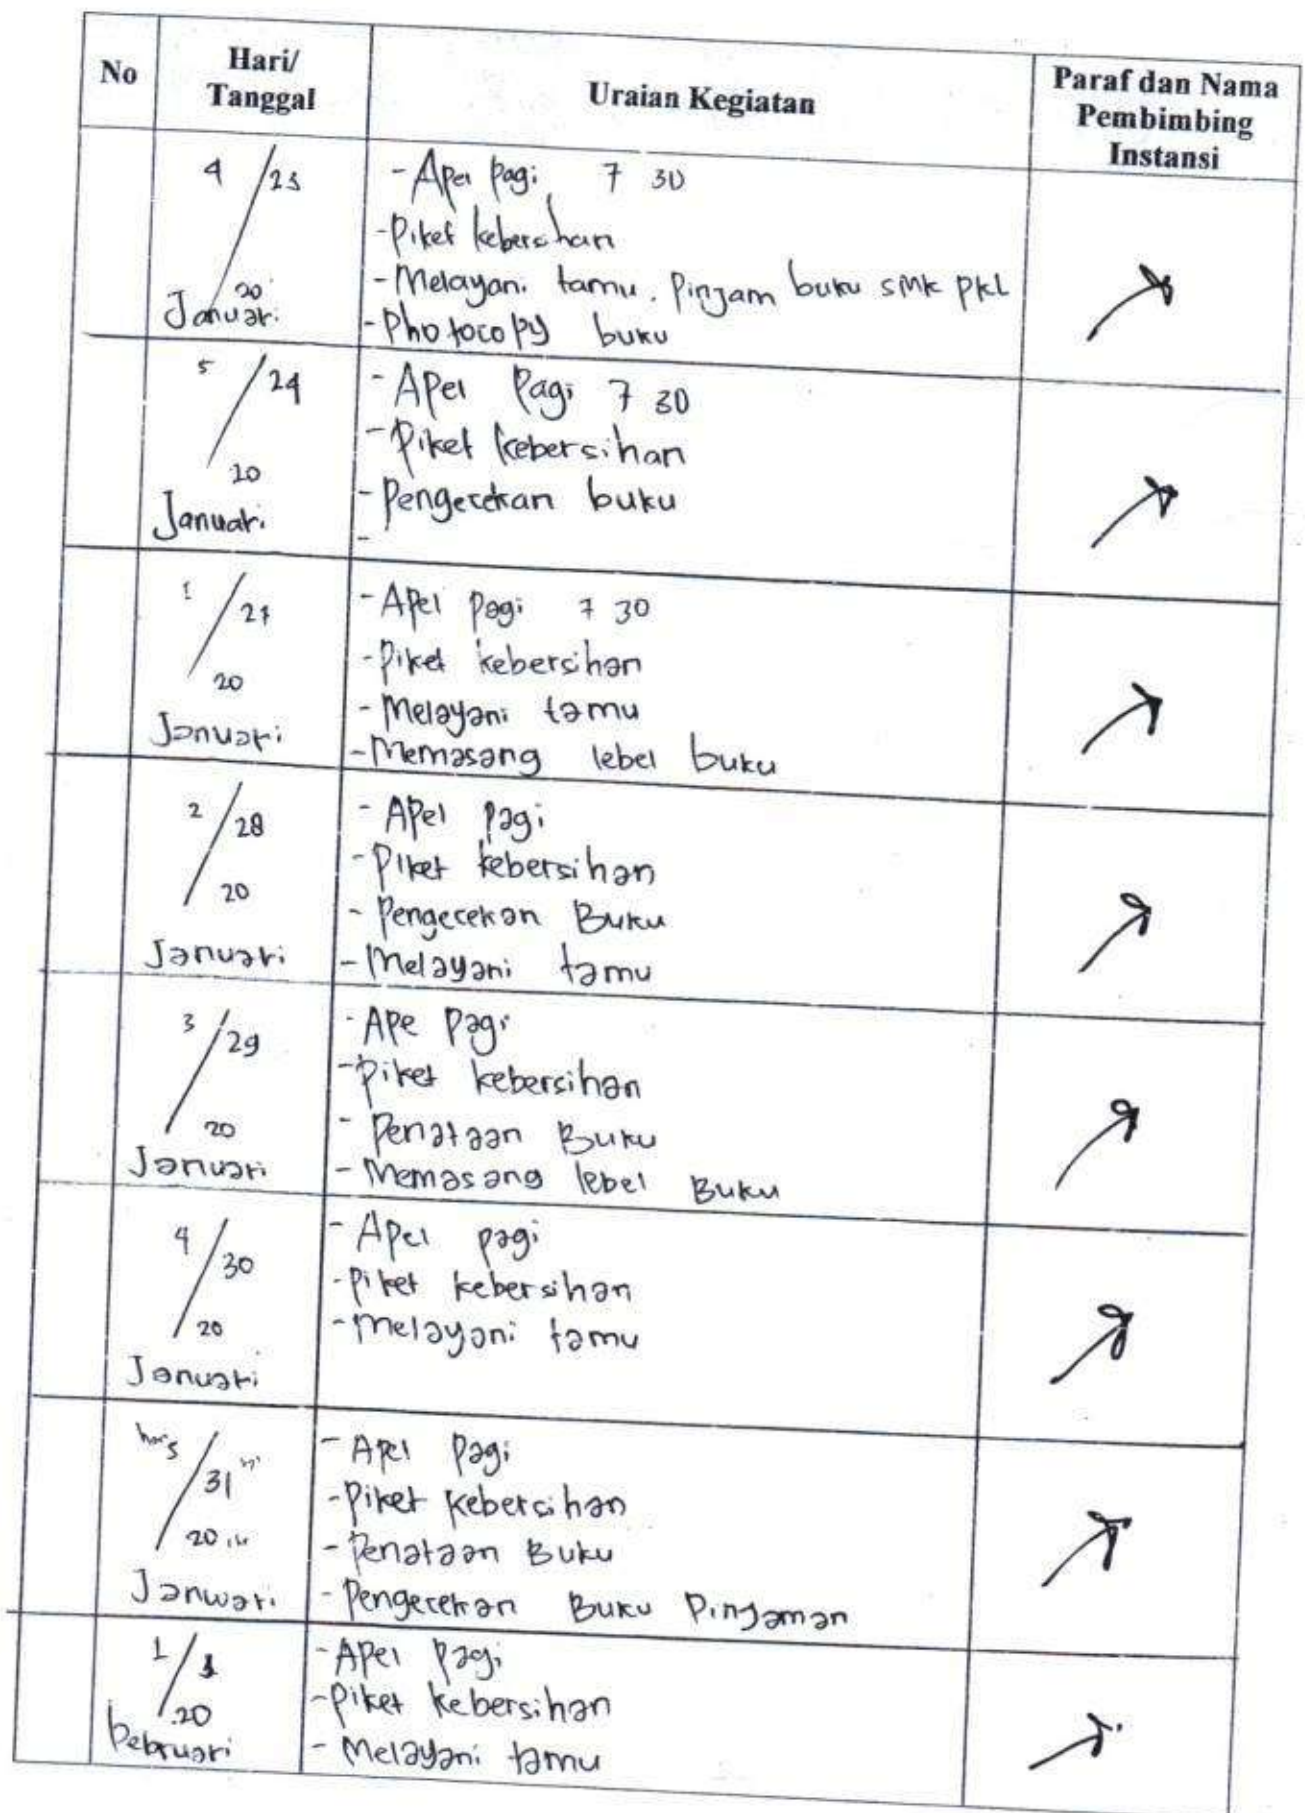 No
Hari/
Tanggal
Uraian Kegiatan
Paraf dan Nama
Pembimbing
Instansi
4 / 23
20
Januari
- Apel pagi 7 30
- Piket kebersihan
- Melayani tamu. Pinjam buku SMK PKL
- Photocopy buku
5 / 24
20
Januari
- Apel Pagi 7 30
- Piket kebersihan
- Pengecekan buku
-
1 / 27
20
Januari
- Apel pagi 7 30
- Piket kebersihan
- Melayani tamu
- Memasang lebel buku
2 / 28
20
Januari
- Apel pagi
- Piket kebersihan
- Pengecekan Buku
- Melayani tamu
3 / 29
20
Januari
- Ape pagi
- Piket kebersihan
- Penataan Buku
- Memasang lebel Buku
4 / 30
20
Januari
- Apel pagi
- Piket kebersihan
- Melayani tamu
hari 5 / 31
20
Januari
- Apel Pagi
- Piket kebersihan
- Penataan Buku
- Pengecekan Buku Pinjaman
1 / 1
20
Pebruari
- Apel pagi
- Piket kebersihan
- Melayani tamu